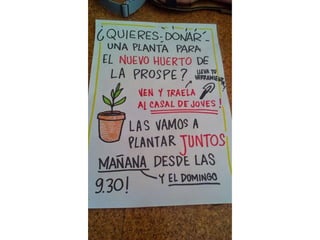 ¿QUIERES DONAR
UNA PLANTA PARA
EL NUEVO HUERTO DE
LA PROSPE?
LLEVA TU
HERRAMIENTA!
VEN Y TRAELA
AL CASAL DE JOVES!
LAS VAMOS A
PLANTAR JUNTOS
MAÑANA DESDE LAS
9:30! Y EL DOMINGO